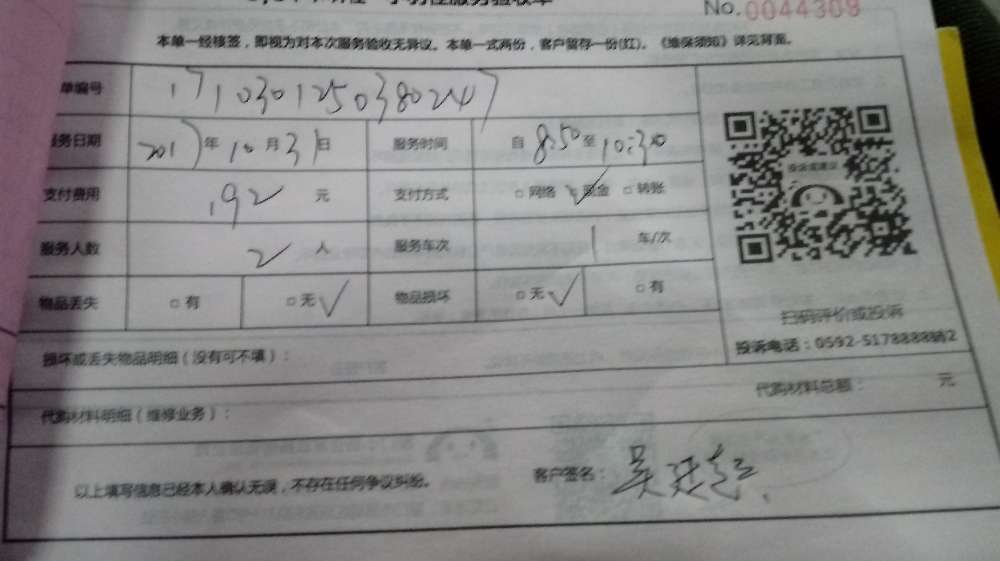 No.0044308
本单一经核签，即视为对本次服务验收无异议。本单一式两份，客户留存一份(红)。《维保须知》详见背面。
单编号 171030125038024 7
服务日期 2017年10月31日 服务时间 自8:50至10:30
投诉或建议
支付费用 192元 支付方式 □网络 ☑现金 □转账
服务人数 2人 服务车次 1车/次
物品丢失 □有 □无√ 物品损坏 □无√ □有
扫码评价或投诉
投诉电话：0592-5178888转2
损坏或丢失物品明细（没有可不填）：
代购材料明细（维修业务）： 代购材料总额： 元
以上填写信息已经本人确认无误，不存在任何争议纠纷。 客户签名：吴